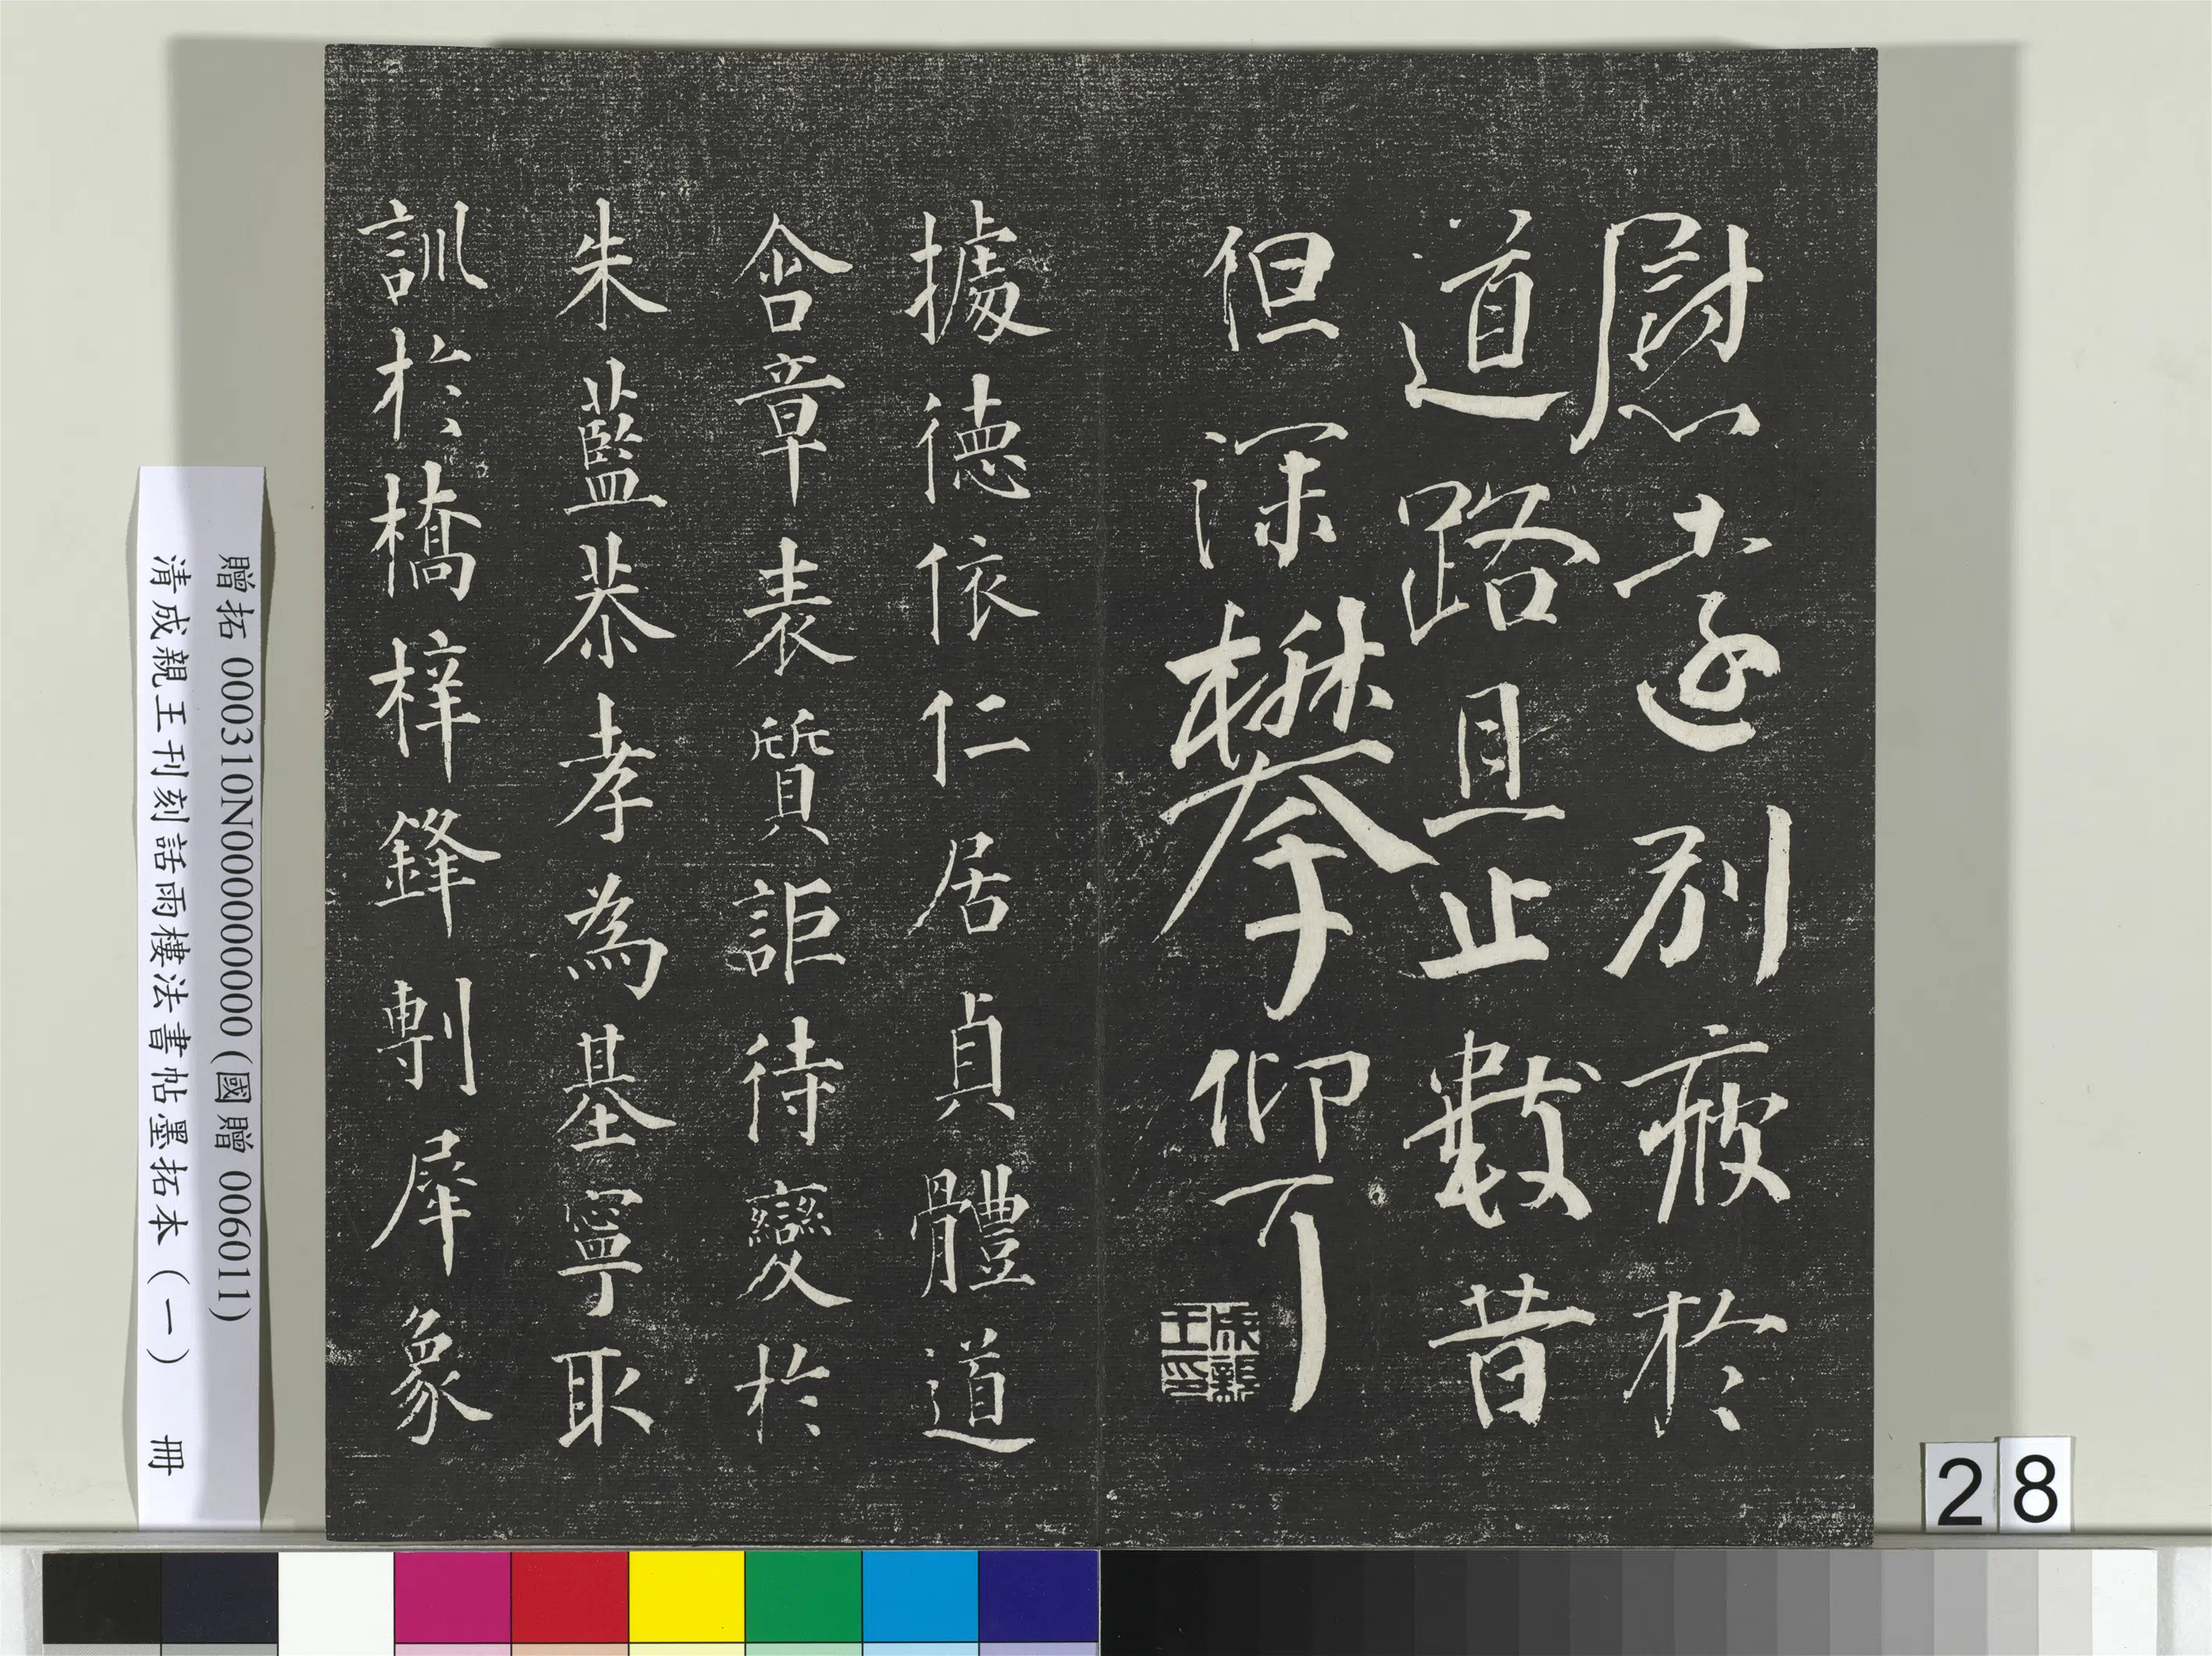 慰吉遠別疲於
道路且止數昔
但深攀仰了
成親王印
據德依仁居貞體道
含章表質詎待變於
朱藍恭孝為基寧取
訓於橋梓鋒剸犀象
贈拓 000310N000000000 (國贈 006011)
清成親王刊刻話雨樓法書帖墨拓本(一) 冊
28